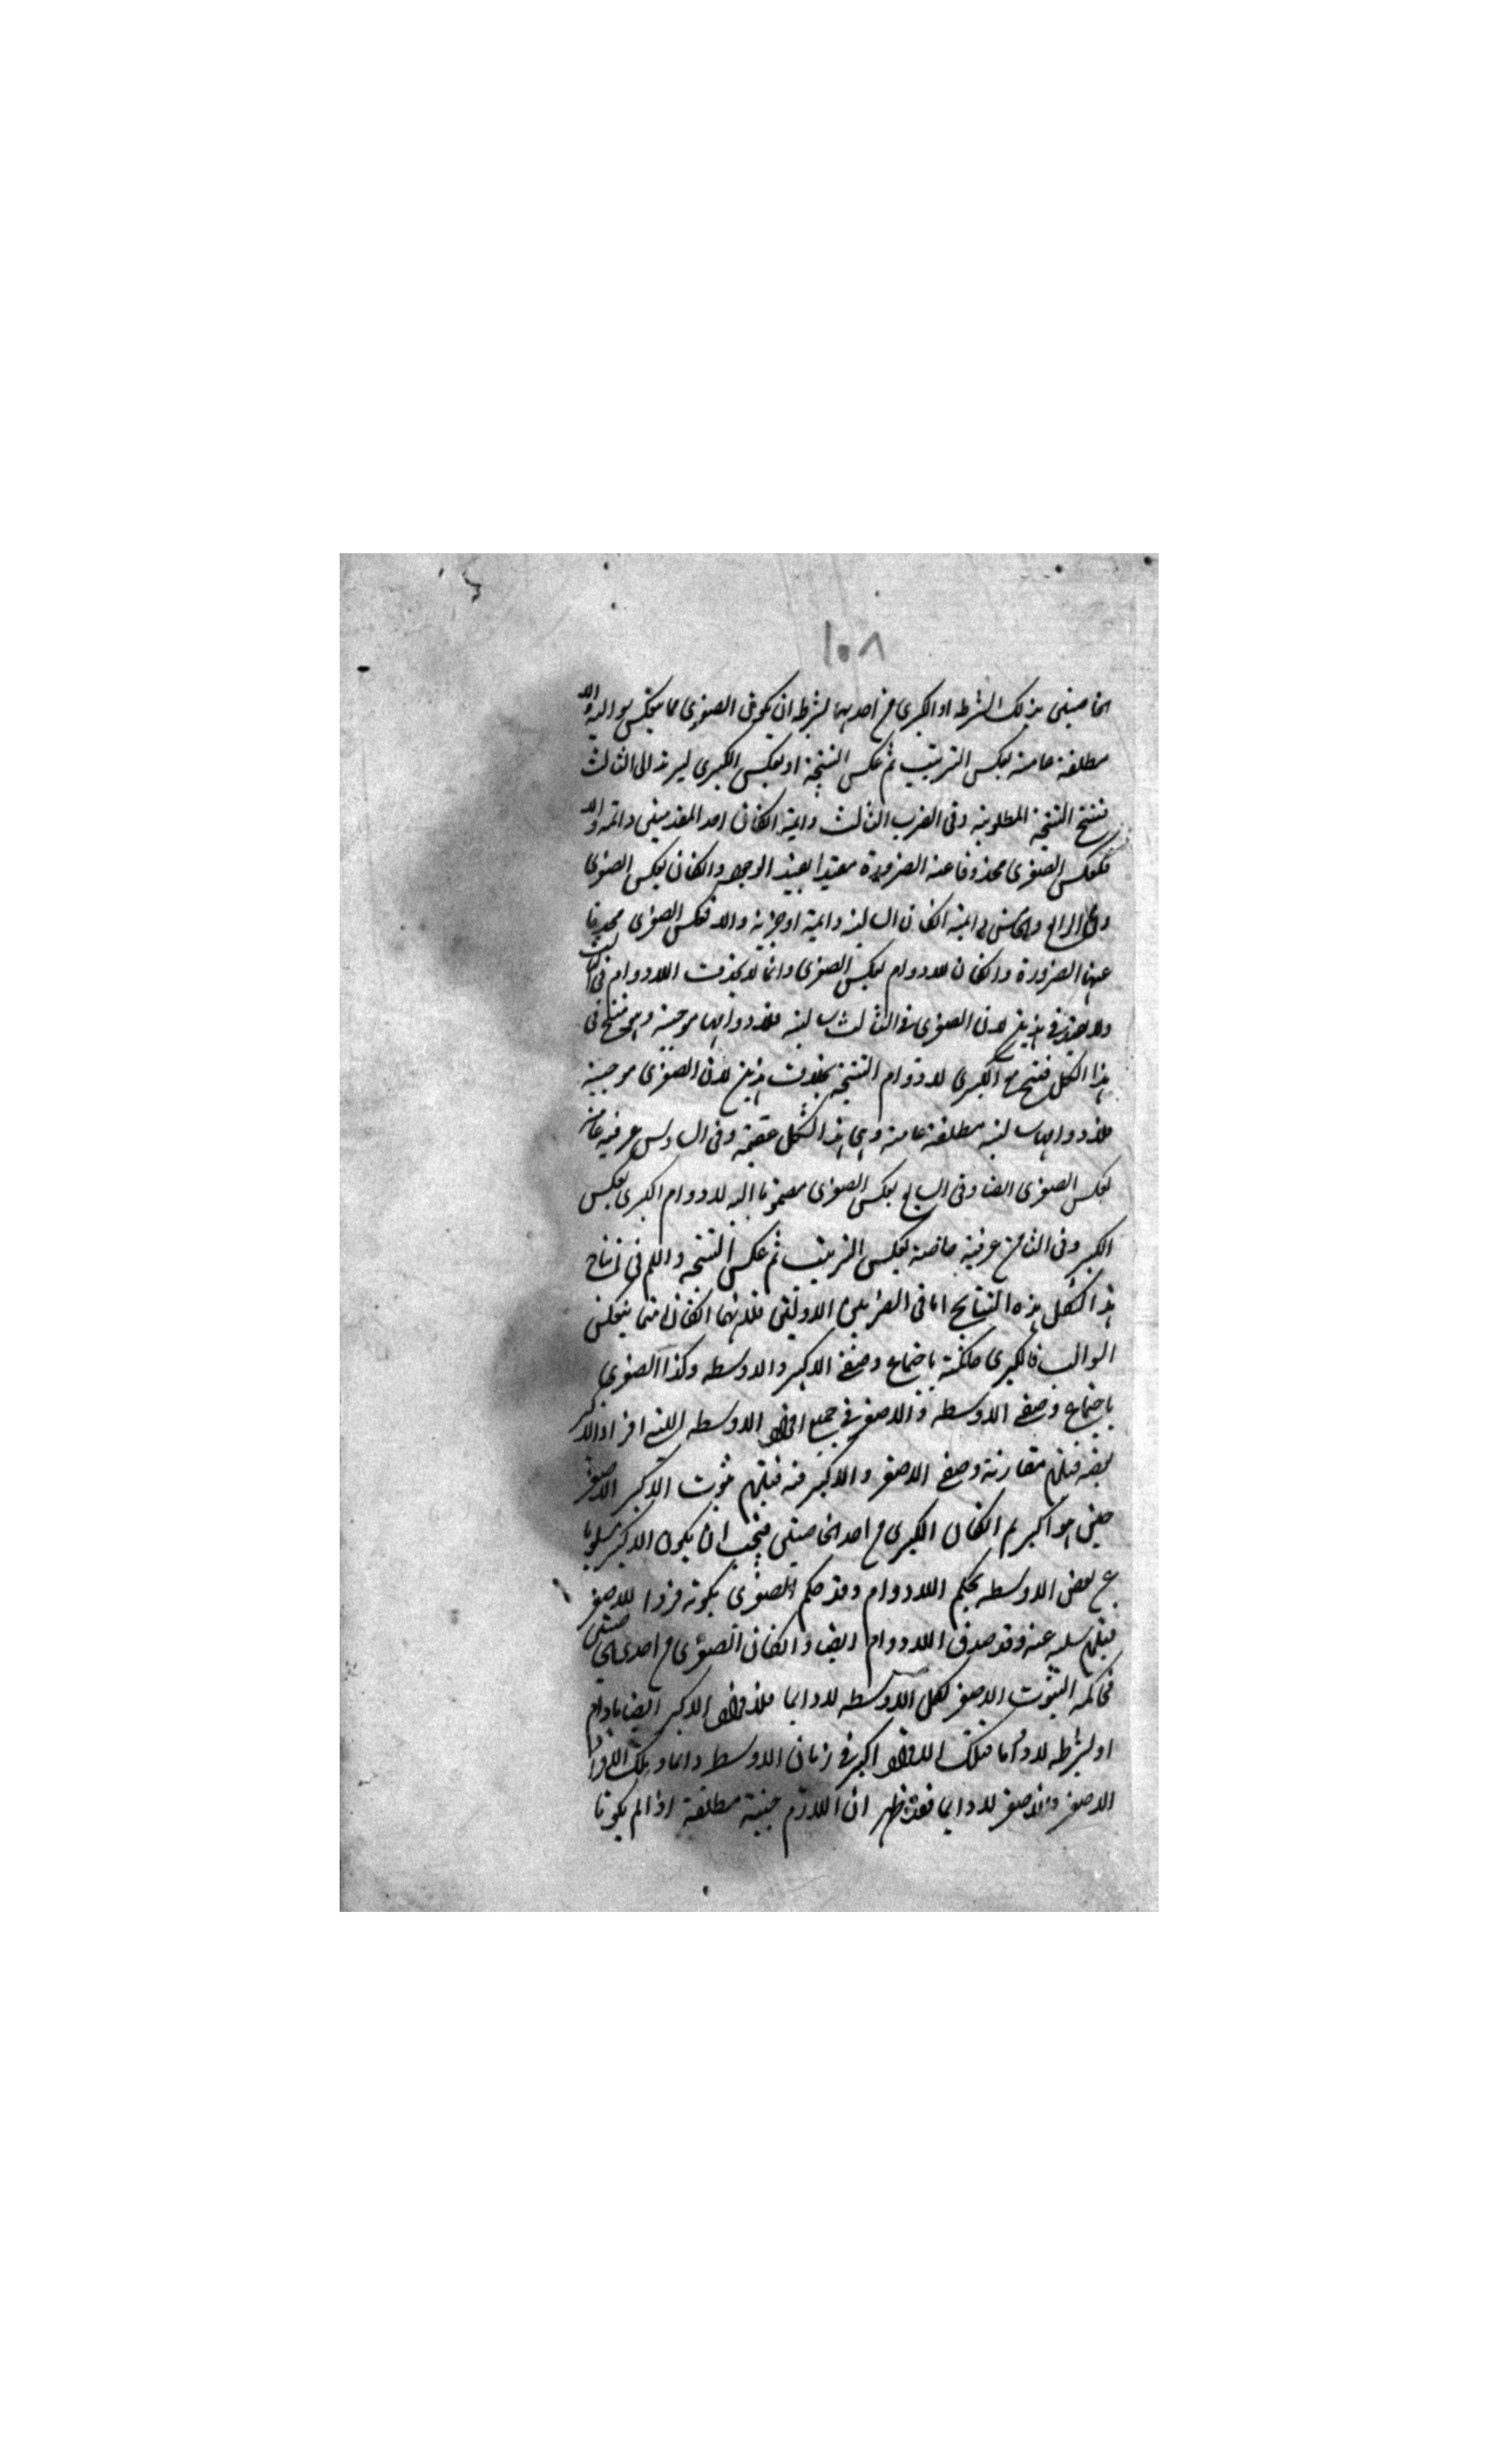 ١٥٨
الخاصتين بذلك الشرط او الكبرى من احديهما بشرط ان يكون الصغرى مما ينعكس سوالبه والا
مطلقة عامة بعكس الترتيب ثم عكس النتيجة او بعكس الكبرى ليرتد الى الثالث
فينتج النتيجة المطلوبة وفي الضرب الثالث دايمة انكان احد المقدمتين دائمة والا
فكعكس الصغرى محذوفا عنه الضرورة مقيدا بقيد الوجود انكان بعكس الصغرى
وفي الرابع والخامس دايمة انكان السالبة دايمة او جزية والا فعكس الصغرى محذوفا
عنها الضرورة وانكان لادوام بعكس الصغرى وانما لا يحذف اللادوام في الثالث
ولا هذين لان الصغرى في الثالث سالبة فلادوامها موجبة وهي تنتج في
هذا الشكل فتنتج مع الكبرى لادوام النتيجة بخلاف هذين لان الصغرى موجبة
فلادوامها سالبة مطلقة عامة وهي في هذا الشكل عقيمة وفي السادس عرفية عامة
بعكس الصغرى ايضا وفي السابع بعكس الصغرى مضموما اليه لادوام الكبرى بعكس
الكبر وفي الثامن عرفية خاصة بعكس الترتيب ثم عكس النتيجة واللم في انتاج
هذا الشكل هذه النتايج اما في الضربين الاولين فلانهما انكانا مما ينعكس
السوالب فالكبرى حاكمة باجتماع وصفي الاكبر والاوسط وكذا الصغرى
باجتماع وصفي الاوسط والاصغر في جميع افراد الاوسط التي افراد الاكبر
بعضه فيلزم مقارنة وصفي الاصغر والاكبر فيه فيلزم ثبوت الاكبر للاصغر
حين هو اكبر ثم انكان الكبرى من احد الخاصتين فيجب ان يكون الاكبر مسلوبا
عن بعض الاوسط بحكم اللادوام وقد حكم الصغرى بكونه فردا للاصغر
فيلزم سلبه عنه وقد صدق اللادوام ايضا وانكان الصغرى من احدى الخاصتين
فحاكمة بثبوت الاصغر لكل الاوسط لادايما فلافراد الاكبر ايضا مادام
اوسط لادايما فتلك الافراد اكبر في زمان الاوسط دائما وتلك الافراد
الاصغر والاصغر لادايما فقد ظهر ان اللازم حينية مطلقة اذا لم يكونا